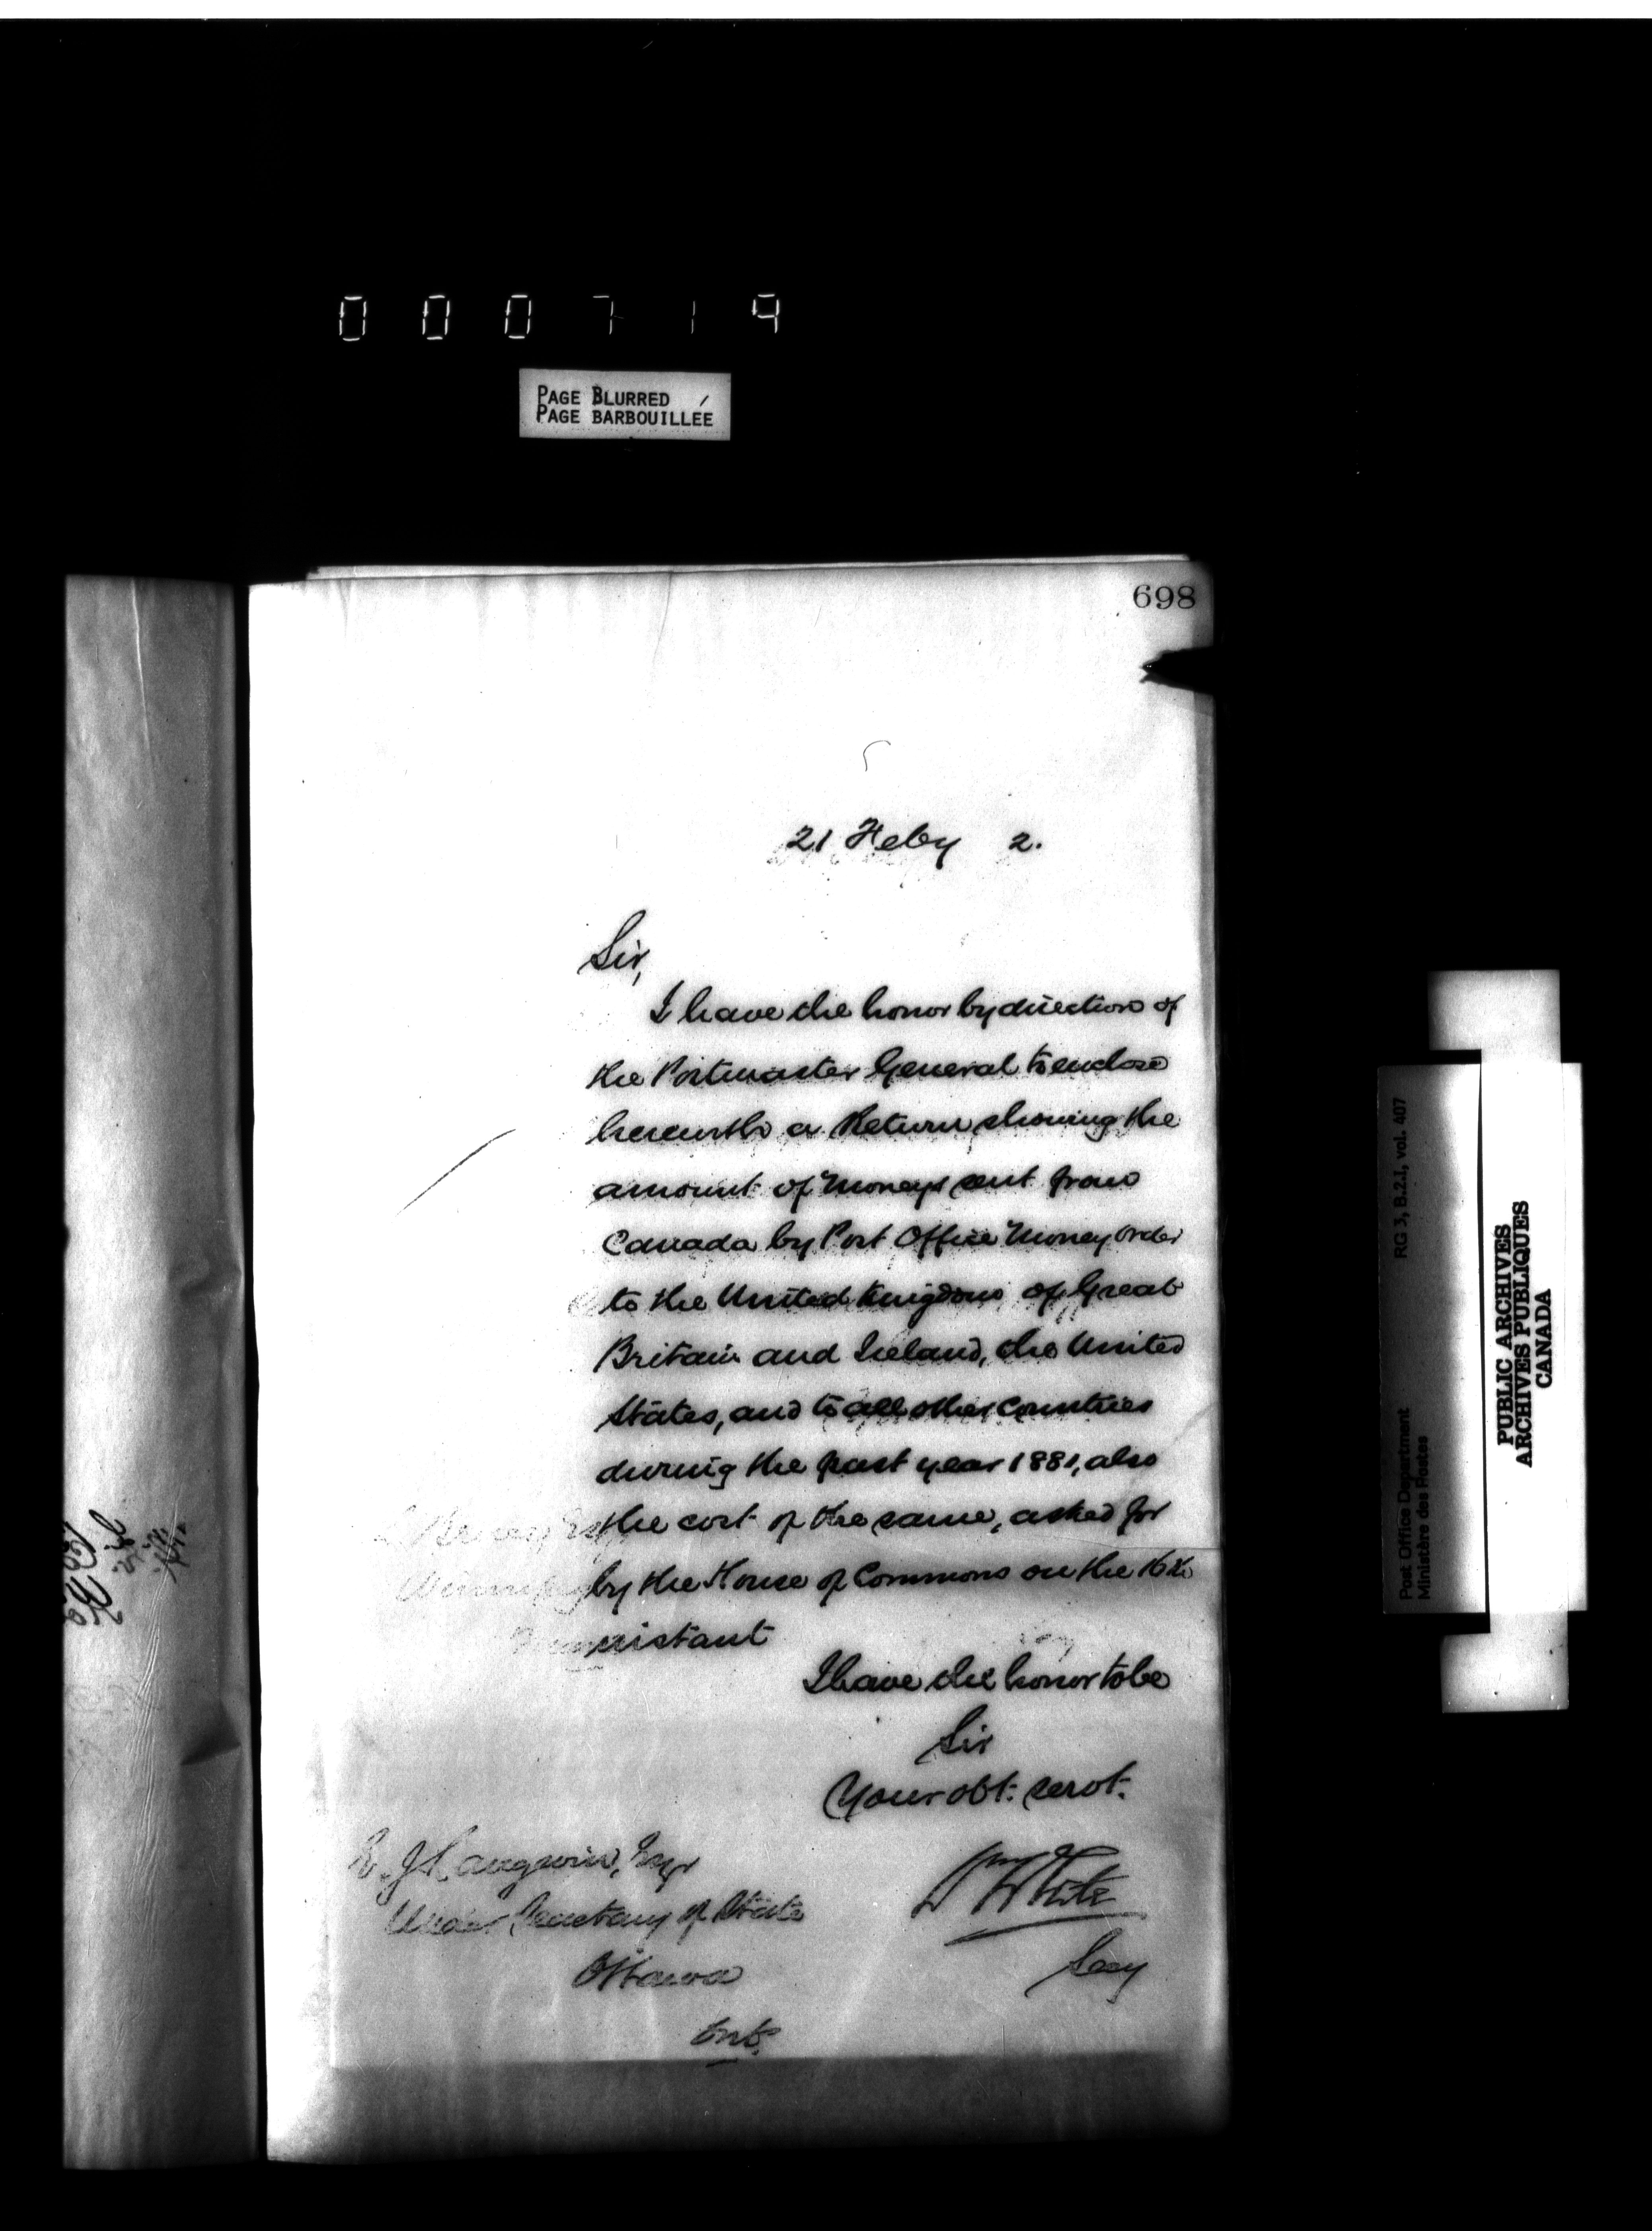 000719
PAGE BLURRED
PAGE BARBOUILLÉE
698
21 Feby 2.
Sir,
I have the honor by direction of
the Postmaster General to enclose
herewith a Return showing the
amount of Moneys sent from
Canada by Post Office Money Order
to the United Kingdom of Great
Britain and Ireland, the United
States, and to all other Countries
during the past year 1881, also
the cost of the same, asked for
by the House of Commons on the 16th
instant
I have the honor to be
Sir
Your obt. servt.
Wm White
Secy
E. J. Langevin, Esqr
Under Secretary of State
Ottawa
Ont.
Winnipeg
RG 3, B.2.1, vol. 407
Post Office Department
Ministère des Postes
PUBLIC ARCHIVES
ARCHIVES PUBLIQUES
CANADA